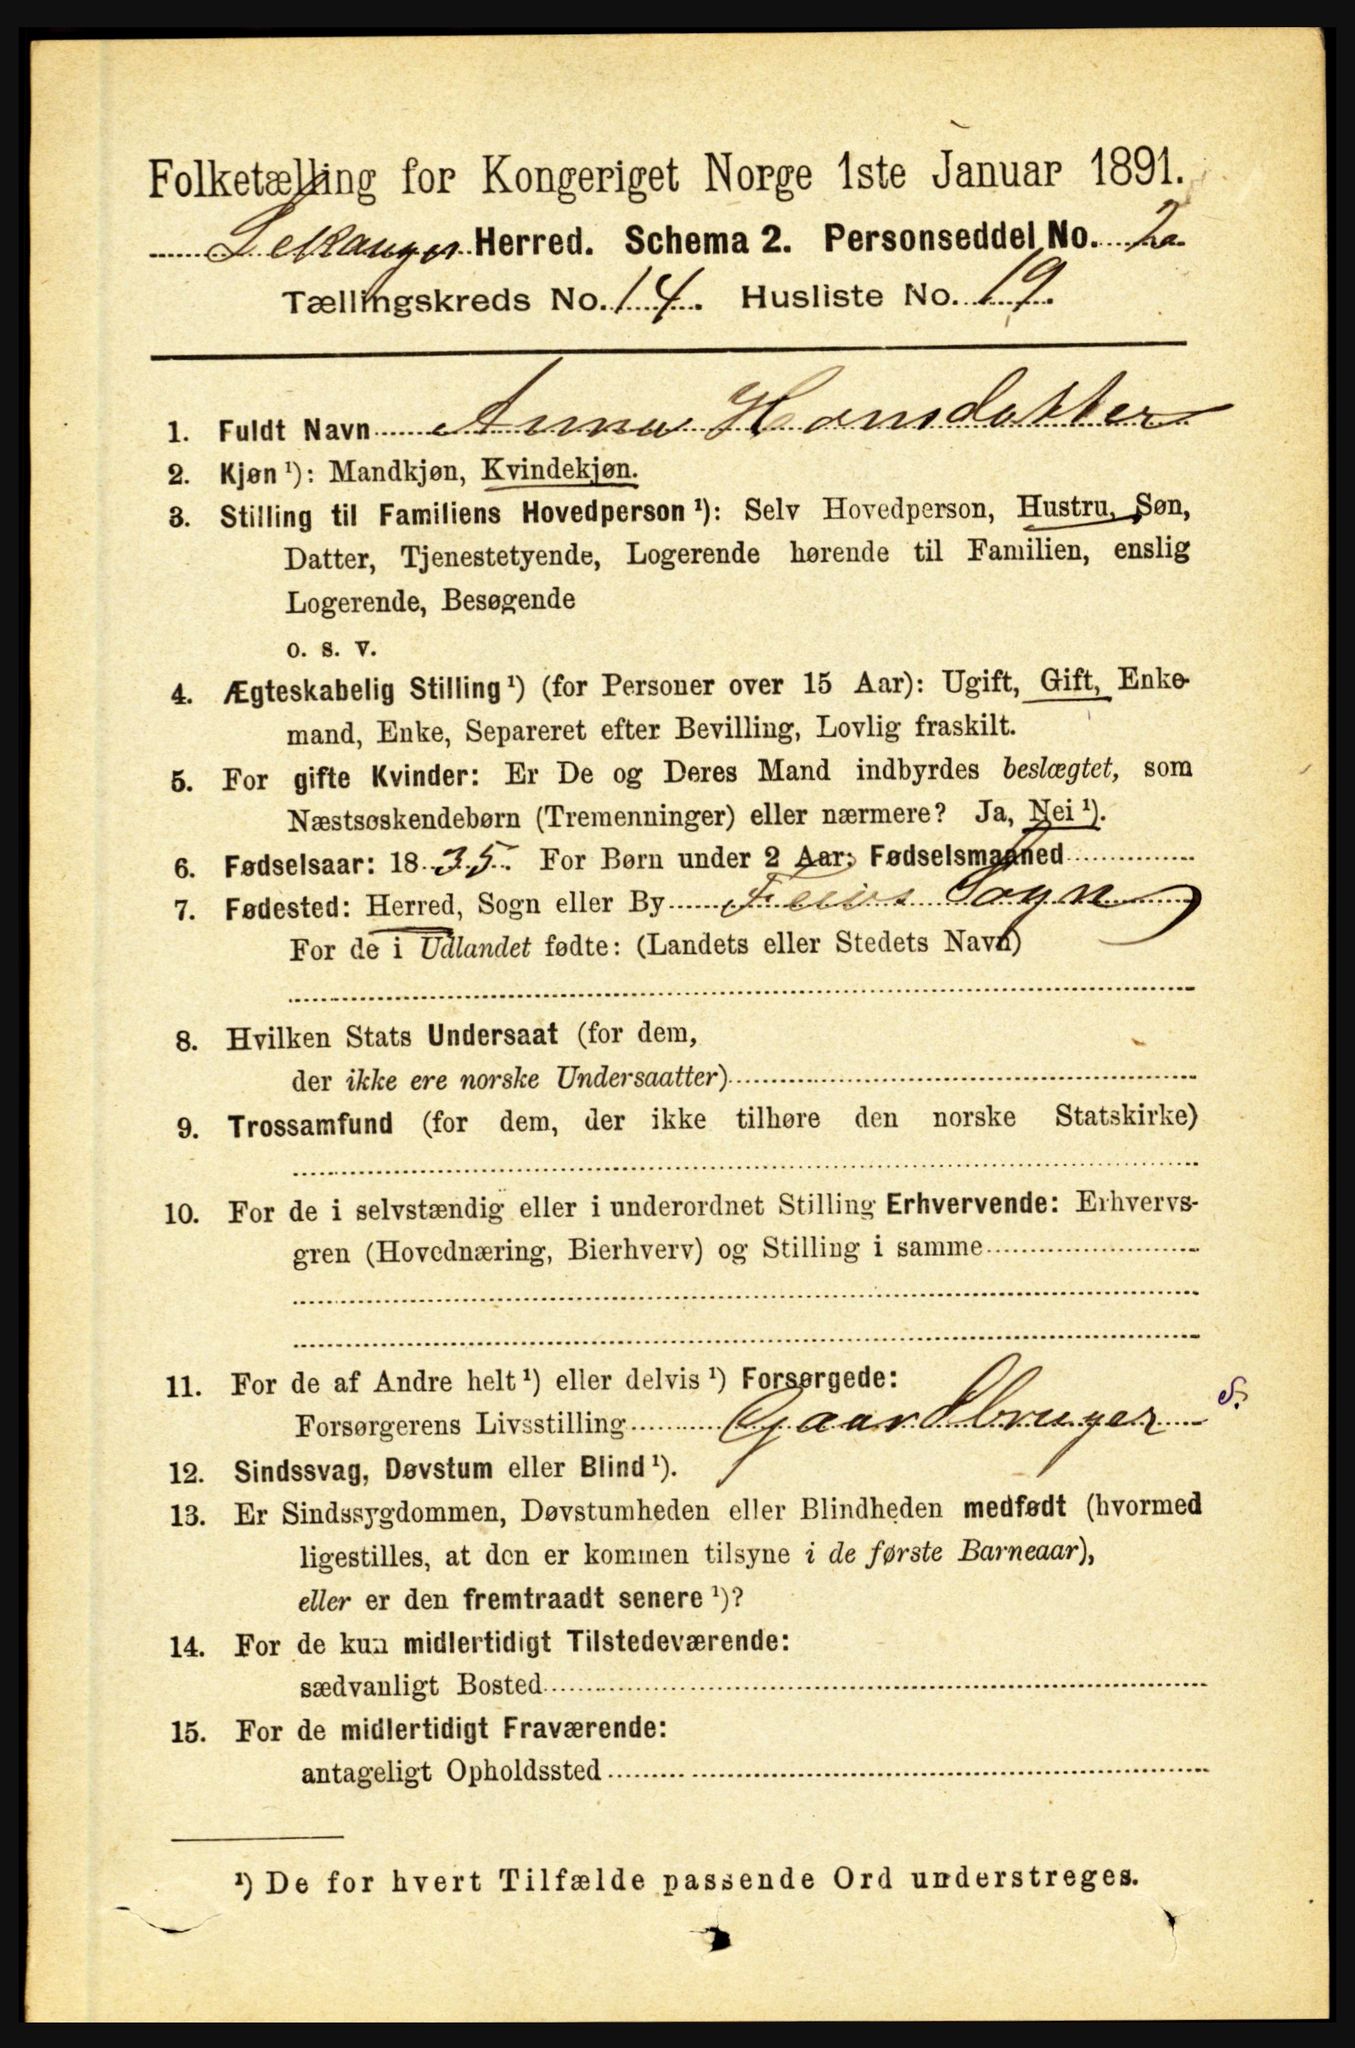 Folketælling for Kongeriget Norge 1ste Januar 1891.
Leikanger Herred. Schema 2. Personseddel No. 2.
Tællingskreds No. 14. Husliste No. 19.
1. Fuldt Navn Anna Hansdatter
2. Kjøn ¹): Mandkjøn, Kvindekjøn.
3. Stilling til Familiens Hovedperson ¹): Selv Hovedperson, Hustru, Søn,
Datter, Tjenestetyende, Logerende hørende til Familien, enslig
Logerende, Besøgende
o. s. v.
4. Ægteskabelig Stilling ¹) (for Personer over 15 Aar): Ugift, Gift, Enke-
mand, Enke, Separeret efter Bevilling, Lovlig fraskilt.
5. For gifte Kvinder: Er De og Deres Mand indbyrdes beslægtet, som
Næstsøskendebørn (Tremenninger) eller nærmere? Ja, Nei ¹).
6. Fødselsaar: 1835. For Børn under 2 Aar: Fødselsmaaned
7. Fødested: Herred, Sogn eller By Feios Sogn
For de i Udlandet fødte: (Landets eller Stedets Navn)
8. Hvilken Stats Undersaat (for dem,
der ikke ere norske Undersaatter)
9. Trossamfund (for dem, der ikke tilhøre den norske Statskirke)
10. For de i selvstændig eller i underordnet Stilling Erhvervende: Erhvervs-
gren (Hovednæring, Bierhverv) og Stilling i samme
11. For de af Andre helt ¹) eller delvis ¹) Forsørgede:
Forsørgerens Livsstilling Gaardbruger S.
12. Sindssvag, Døvstum eller Blind ¹).
13. Er Sindssygdommen, Døvstumheden eller Blindheden medfødt (hvormed
ligestilles, at den er kommen tilsyne i de første Barneaar),
eller er den fremtraadt senere ¹)?
14. For de kun midlertidigt Tilstedeværende:
sædvanligt Bosted
15. For de midlertidigt Fraværende:
antageligt Opholdssted
¹) De for hvert Tilfælde passende Ord understreges.